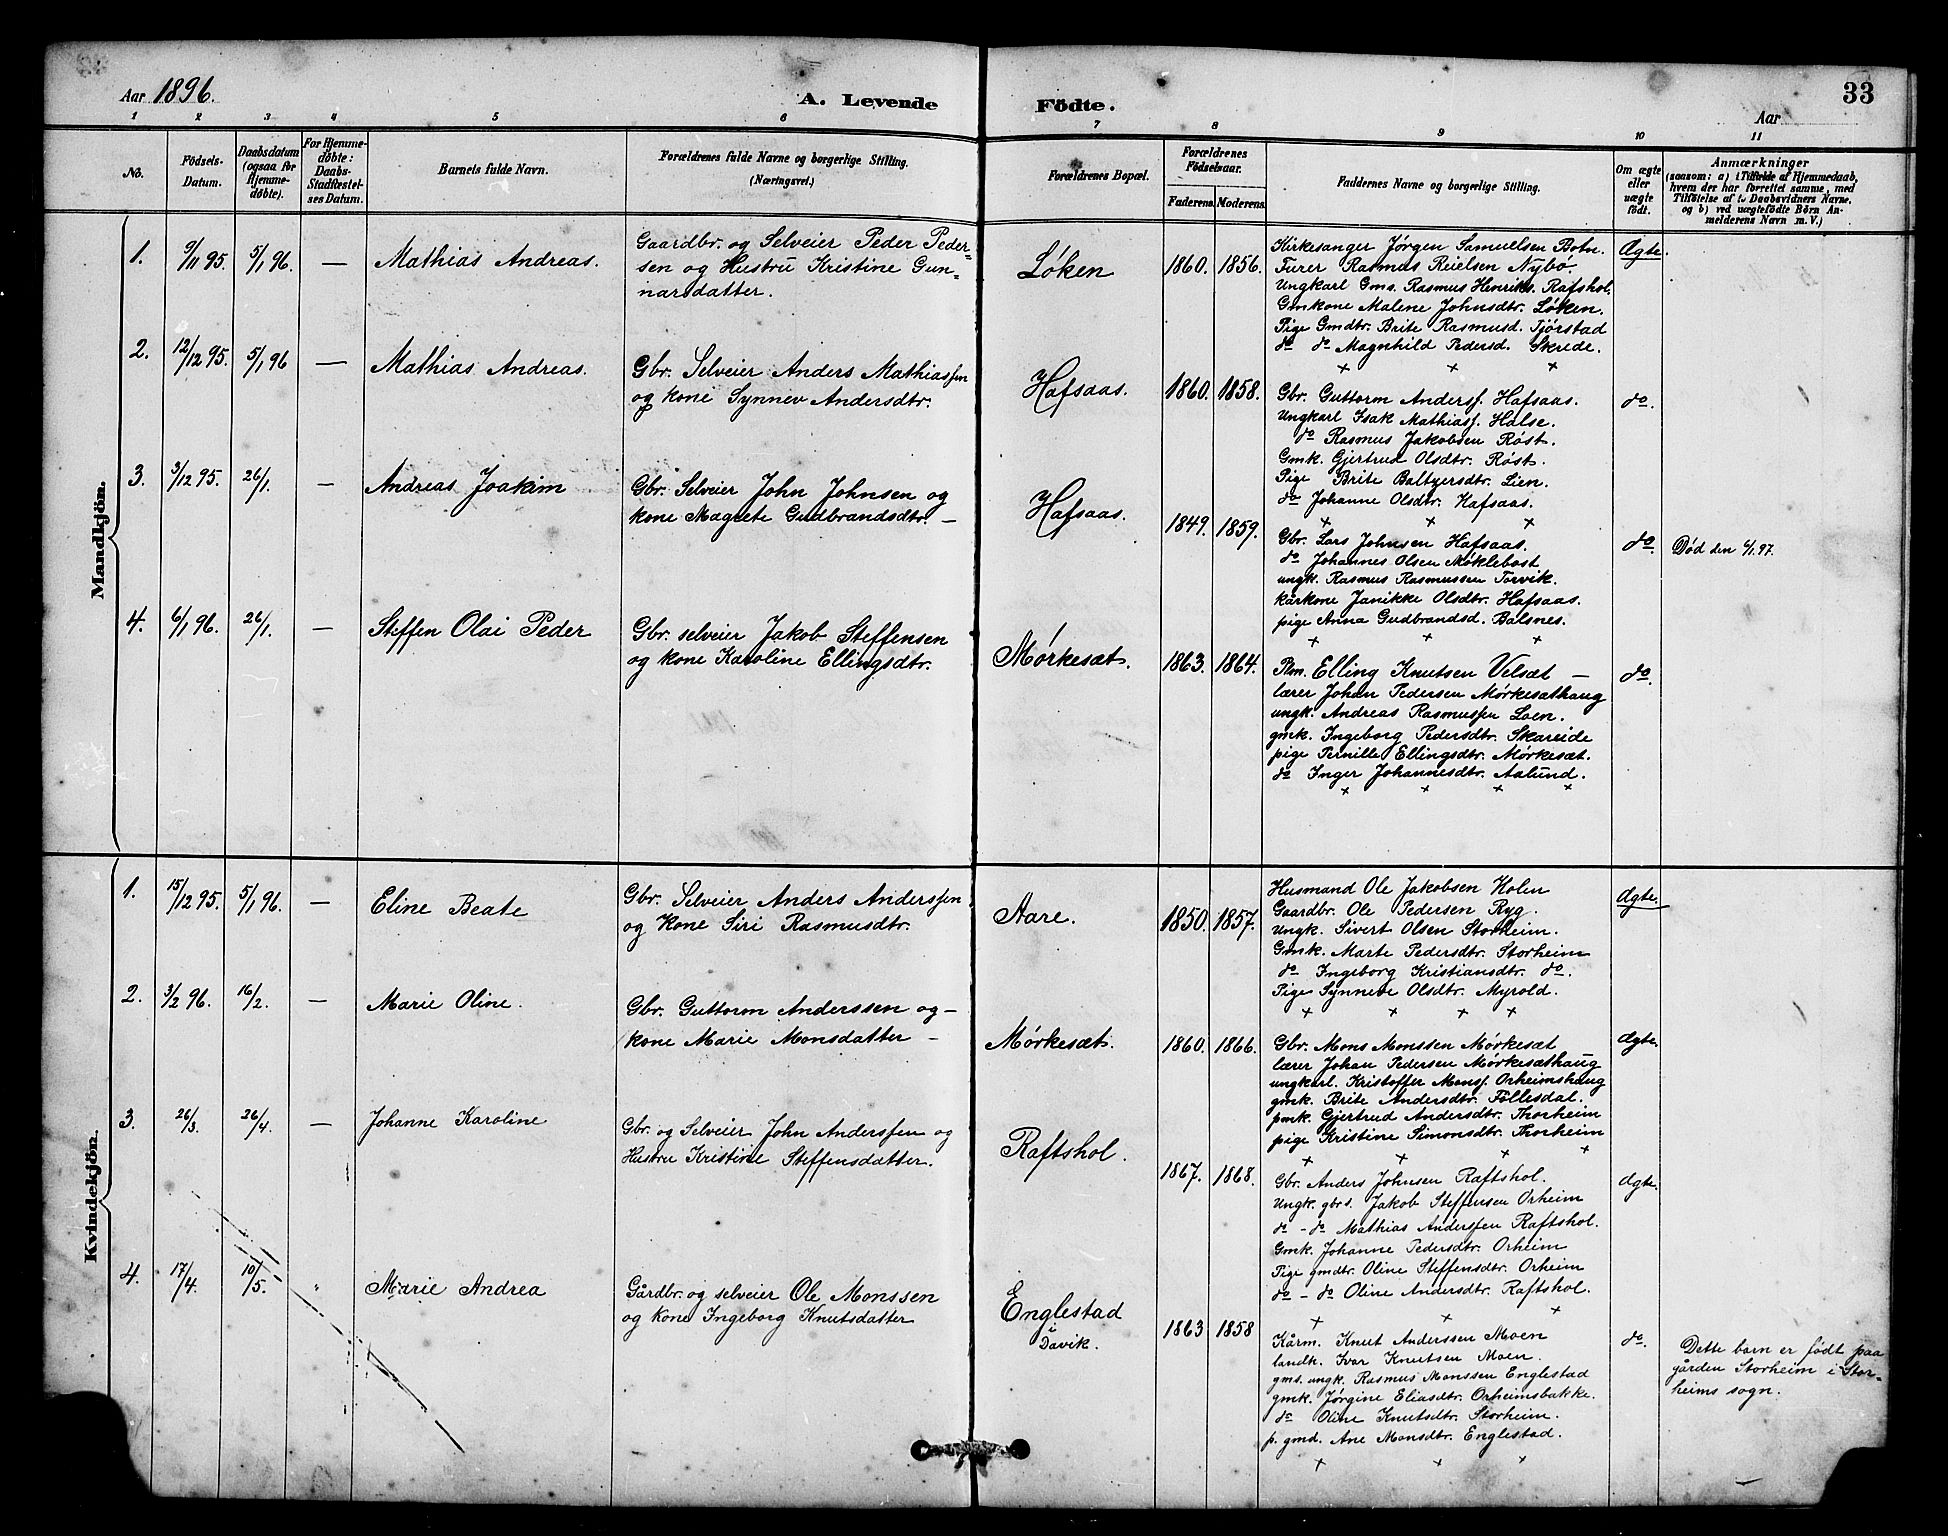 Aar 1896.
A. Levende Födte.
33
Aar
1 2 3 4 5 6 7 8 9 10 11
No.
Födsels-
Datum.
Daabsdatum
(ogsaa for
Hjemme-
døbte).
For Hjemme-
døbte:
Daabs-
Stadfæstel-
ses Datum.
Barnets fulde Navn.
Forældrenes fulde Navne og borgerlige Stilling.
(Næringsvei.)
Forældrenes Bopæl.
Forældrenes
Födselsaar.
Faderens. Moderens.
Faddernes Navne og borgerlige Stilling.
Om ægte
eller
uægte
født.
Anmærkninger
(saasom: a) i Tilfælde af Hjemmedaab,
hvem der har forrettet samme, med
Tilføielse af to Daabsvidners Navne,
og b) ved uægtefødte Börn An-
melderens Navn m. V.)
Mandkjön.
1. 9/11 95. 5/1 96. — Mathias Andreas.
Gaardbr. og Selveier Peder Peder-
sen og Hustru Kristine Gun-
narsdatter.
Løken 1860. 1856.
Kirkesanger Jørgen Samuelsen Botn.
Furer Rasmus Reielsen Nybø.
Ungkarl Gms. Rasmus Henriks. Rafshol.
Gmkone Malene Johnsdtr. Løken.
Pige Gmdtr. Brite Rasmusd. Tjørstad
do do Magnhild Pedersd. Skrede.
+ + +
Ægte.
2. 12/12 95. 5/1 96 — Mathias Andreas.
Gbr. Selveier Anders Mathiassen
og kone Synnev Andersdtr.
Hafsaas. 1860. 1858.
Gbr. Guttorm Anderss. Hafsaas.
Ungkarl Isak Mathiass. Halse.
do Rasmus Jakobsen Røst.
Gmk. Gjertrud Olsdtr. Røst.
Pige Brite Baltzersdtr. Lien.
do Johanne Olsdtr. Hafsaas.
+ + +
do.
3. 3/12 95. 26/1. — Andreas Joakim
Gbr. Selveier John Johnsen og
kone Magrete Gudbrandsdtr. —
Hafsaas. 1849. 1859.
Gbr. Lars Johnsen Hafsaas.
do Johannes Olsen Møklebost
ungk. Rasmus Rasmussen Torvik.
kårkone Janikke Olsdtr. Hafsaas.
pige Anna Gudbrandsd. Balsnes.
+ + +
do. Død den 6/1 97.
4. 6/1 96. 26/1. — Steffen Olai Peder
Gbr. selveier Jakob Steffensen
og kone Karoline Ellingsdtr.
Mørkesæt. 1863. 1864.
Elling Knutsen Velsæt —
lærer Johan Pedersen Mørkesæthaug
ungk. Andreas Rasmussen Loen.
gmk. Ingeborg Pedersdtr. Skareide
pige Pernille Ellingsdtr. Mørkesæt.
do Inger Johannesdtr. Aalund.
+ + + +
do.
Kvindekjön.
1. 15/12 95. 5/1 96. — Eline Beate
Gbr. Selveier Anders Anderssen
og kone Siri Rasmusdtr.
Aare. 1850. 1857.
Husmand Ole Jakobsen Holen
Gaardbr. Ole Pedersen Ryg.
Ungk. Sivert Olsen Storheim.
Gmk. Marte Pedersdtr. Storheim
do Ingeborg Kristiansdtr. do.
Pige Synneve Olsdtr. Myrold.
+ + + +
ægte.
2. 3/2 96. 16/2. — Marie Oline.
Gbr. Guttorm Anderssen og —
kone Marie Monsdatter —
Mørkesæt. 1860. 1866.
Gbr. Mons Monssen Mørkesæt
lærer Johan Pedersen Mørkesæthaug
ungkarl. Kristoffer Monss. Orheimshaug
gmk. Brite Andersdtr. Føllesdal.
gmk. Gjertrud Andersdtr. Thorheim
pige Kristine Simonsdtr. Thorheim
+ + + +
ægte.
3. 26/3. 26/4. — Johanne Karoline
Gbr. og Selveier John Anderssen og
Hustru Kristine Steffensdatter.
Raftshol. 1867. 1868.
Gbr. Anders Johnsen Raftshol.
Ungk. gbrs. Jakob Steffensen Orheim
do – do Mathias Anderssen Raftshol.
Gmk. Johanne Pedersdtr. Orheim
Pige gmdtr. Oline Steffensdtr. Orheim
do – do Oline Andersdtr. Raftshol.
+ + +
ægte.
4. 17/4. 10/5. " Marie Andrea
Gårdbr. og selveier Ole Monssen
og kone Ingeborg Knutsdatter
Englestad
i
Davik.
1863 1858
Kårm. Knut Anderssen Moen
landk. Ivar Knutsen Moen.
gms. ungk. Rasmus Monssen Englestad
gmk. Jørgine Eliasdtr. Orheimsbakke.
do Oline Knutsdtr. Storheim.
p. gmd. Ane Monsdtr. Englestad.
+ + +
do.
Dette barn er født paa
gården Storheim i Stor-
heims sogn.